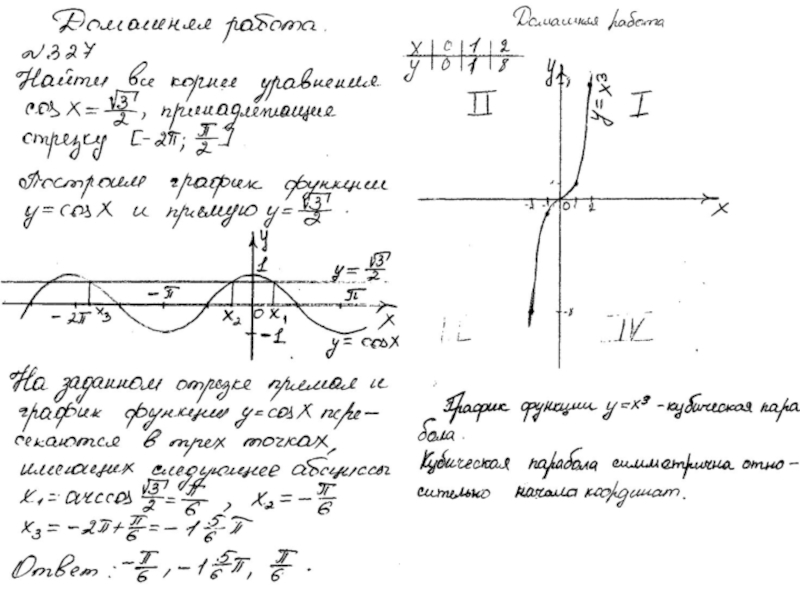 Домашняя работа.
№327
Найти все корнее уравнения
cos x = √3/2, принадлежащие
отрезку [-2π; π/2]
Построим график функции
y = cos x и прямую y = √3/2.
y
1
y = √3/2
-π
π
-2π x₃ x₂ 0 x₁ x
-1
y = cos x
На заданном отрезке прямая и
график функции y = cos x пере-
секаются в трех точках,
имеющих следующее абсциссы
x₁ = arccos √3/2 = π/6, x₂ = -π/6
x₃ = -2π + π/6 = -1 5/6 π
Ответ: -π/6, -1 5/6 π, π/6.
Домашняя работа
x 0 1 2
y 0 1 8
y
II I
y = x³
-2 -1 0 1 2
x
-8
IV
График функции y = x³ - кубическая пара
бола.
Кубическая парабола симметрична отно-
сительно начала координат.